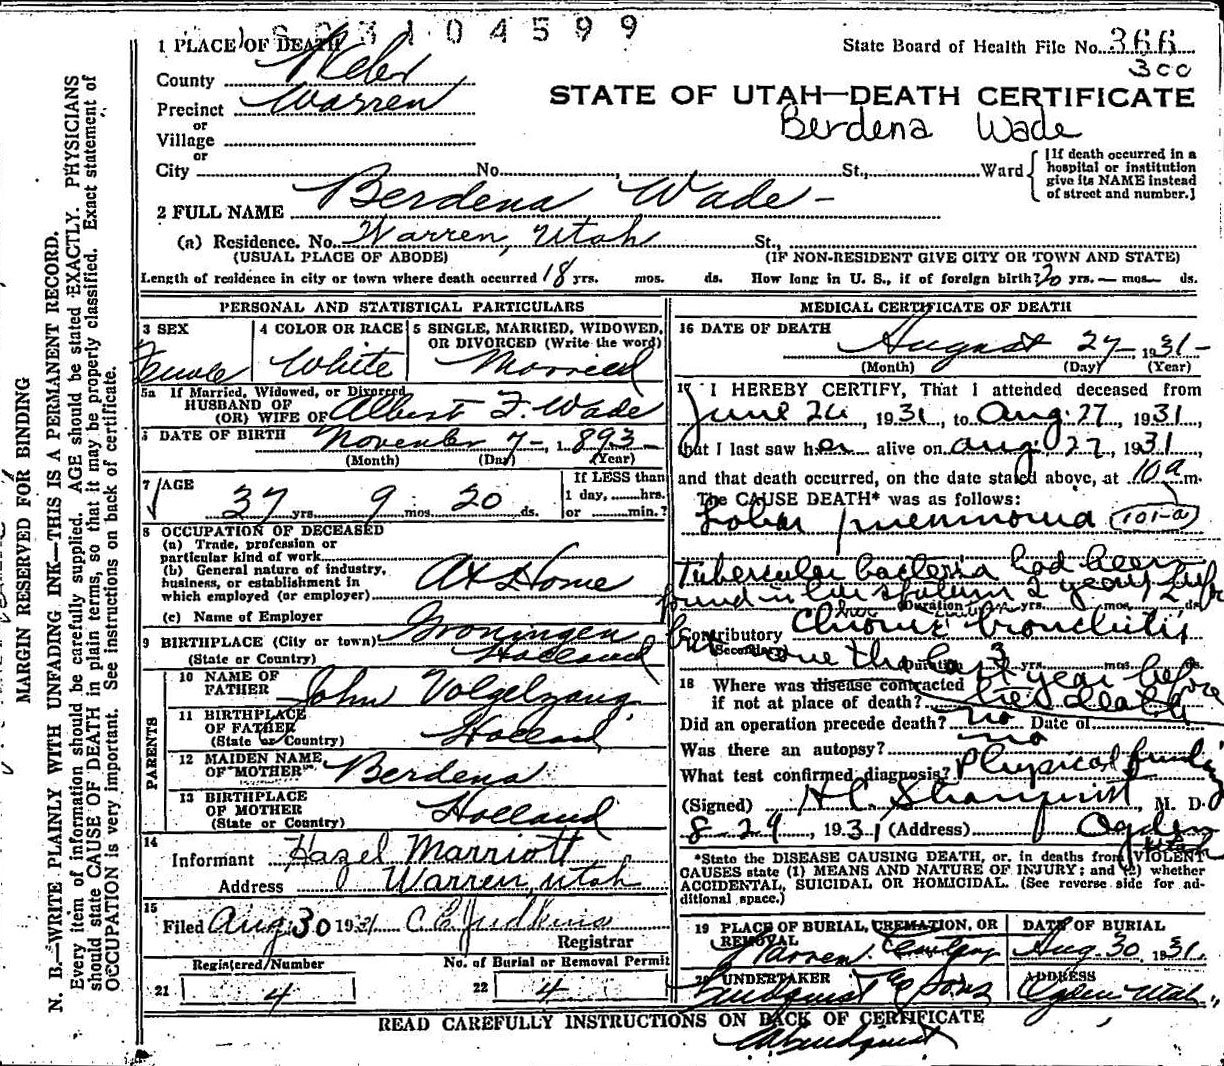 3104599
1 PLACE OF DEATH
State Board of Health File No. 366
300
County Weber
Precinct Warren
or
Village
or
City No. , St., Ward
[If death occurred in a hospital or institution give its NAME instead of street and number.]
STATE OF UTAH—DEATH CERTIFICATE
Berdena Wade
2 FULL NAME Berdena Wade
(a) Residence. No. Warren, Utah St.,
(USUAL PLACE OF ABODE) (IF NON-RESIDENT GIVE CITY OR TOWN AND STATE)
Length of residence in city or town where death occurred 18 yrs. mos. ds. How long in U. S., if of foreign birth? 20 yrs. — mos — ds.
PERSONAL AND STATISTICAL PARTICULARS
3 SEX
Female
4 COLOR OR RACE
White
5 SINGLE, MARRIED, WIDOWED, OR DIVORCED (Write the word)
Married
5a If Married, Widowed, or Divorced
HUSBAND OF
(OR) WIFE OF Albert F. Wade
DATE OF BIRTH November 7 — 1893 —
(Month) (Day) (Year)
7 AGE
37 yrs. 9 mos. 20 ds.
If LESS than
1 day, hrs.
or min.?
8 OCCUPATION OF DECEASED
(a) Trade, profession or
particular kind of work
(b) General nature of industry,
business, or establishment in
which employed (or employer)
At Home
(c) Name of Employer
9 BIRTHPLACE (City or town) Groningen
(State or Country) Holland
PARENTS
10 NAME OF
FATHER John Volgelzang
11 BIRTHPLACE
OF FATHER
(State or Country) Holland
12 MAIDEN NAME
OF MOTHER Berdena
13 BIRTHPLACE
OF MOTHER
(State or Country) Holland
14
Informant Hazel Marriott
Address Warren, Utah
15
Filed Aug 30 1931 C E Judkins
Registrar
Registered Number
21 4
No. of Burial or Removal Permit
22 4
MEDICAL CERTIFICATE OF DEATH
16 DATE OF DEATH
August 27 — 1931 —
(Month) (Day) (Year)
17 I HEREBY CERTIFY, That I attended deceased from
June 24, 1931, to Aug. 27, 1931,
that I last saw her alive on Aug 27, 1931,
and that death occurred, on the date stated above, at 10 a m.
The CAUSE DEATH* was as follows:
Lobar pneumonia (101-a)
Tubercular bacteria had been
found in her sputum 2 years before
(Duration) yrs. mos. ds.
Contributory Chronic bronchitis
(Secondary)
(Duration) 3 yrs. mos. ds.
but the last year before
her death
18 Where was disease contracted
if not at place of death?
Did an operation precede death? no Date of
Was there an autopsy? no
What test confirmed diagnosis? Physical finding
(Signed) H.C. Stranquist, M. D.
8-29, 1931 (Address) Ogden Utah
*State the DISEASE CAUSING DEATH, or, in deaths from VIOLENT CAUSES state (1) MEANS AND NATURE OF INJURY; and (2) whether ACCIDENTAL, SUICIDAL OR HOMICIDAL. (See reverse side for additional space.)
19 PLACE OF BURIAL, CREMATION, OR
REMOVAL
Warren Cemtery
DATE OF BURIAL
Aug. 30 1931.
20 UNDERTAKER
Lindquist & Sons
ADDRESS
Ogden Utah
READ CAREFULLY INSTRUCTIONS ON BACK OF CERTIFICATE
Lindquist
MARGIN RESERVED FOR BINDING
N. B.—WRITE PLAINLY WITH UNFADING INK—THIS IS A PERMANENT RECORD.
Every item of information should be carefully supplied. AGE should be stated EXACTLY. PHYSICIANS
should state CAUSE OF DEATH in plain terms, so that it may be properly classified. Exact statement of
OCCUPATION is very important. See instructions on back of certificate.